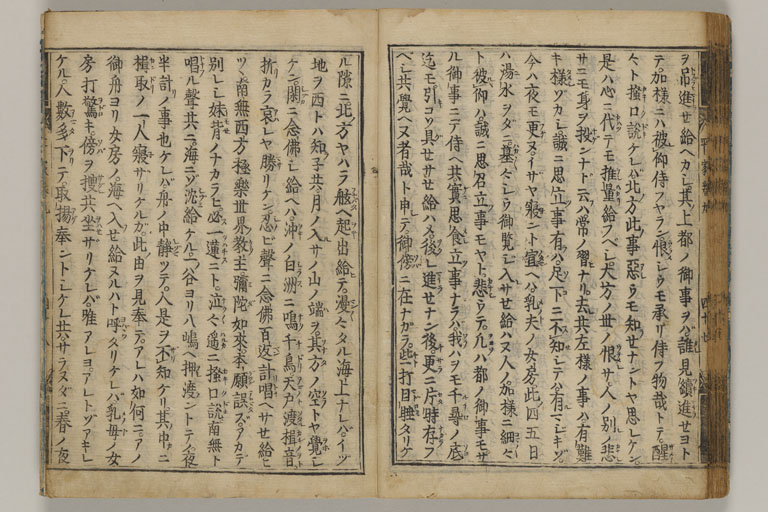 ヲ弔進セ給ヘカシ其上都ノ御事ヲハ誰見續進セヨト
テ加樣ニハ被仰侍フヤラン恨シウモ承リ侍フ物哉トテ醒
々ト掻口説ケレハ北方此事惡ウモ知セナントヤ思レケン
是ハ心ニ代テモ推量給フベシ大方ノ世ノ恨サ人ノ別ノ悲
サニモ身ヲ投ンナド云ハ常ノ習ナリ去共左樣ノ事ハ有難
キ樣ツカシ誠ニ思立事有ハ足下ニ不知シテハ有マシキゾ
今ハ夜モ更ヌイサヤ寢ント宣ヘハ乳夫ノ女房此四五日
ハ湯水ヲダニ墓々シウ御覧シ入サセ給ハヌ人ノ加樣ニ細々
ト被仰ハ誠ニ思召立事モヤト悲ウテ凡ハ都ノ御事モサ
ル御事ニテ侍ヘ共實思食立事ナラハ我ハヲモ千尋ノ底
迄モ引コソ具セサセ給ハメ後レ進セナン後更ニ片時存フ
ベシ共覺ヘヌ者哉ト申テ御傍ニ在ナガラ些打目睡タリケ
ル隙ニ北方ヤハラ舷ヘ起出給テ漫々タル海上ナレバイツ
地ヲ西トハ知子共月ノ入サノ山ノ端ヲ其方ノ空トヤ覺シ
ケン閑ニ念佛シ給ヘハ沖ノ白洲ニ鳴千鳥天戸渡楫音
折カラ哀レヤ勝リケン忍ビ聲ニ念佛百返計唱ヘサセ給ヒ
ツヽ南無西方極樂世界教主彌陀如來本願誤ズアカデ
別レシ妹背ノナカラヒ必一蓮ニト泣々遥ニ掻口説南無ト
唱ル聲共ニ海ニゾ沈給ケル一谷ヨリ八嶋ヘ押渡ントテノ夜
半計ノ事也ケレハ舟ノ中靜ツテ人是ヲ不知ケリ其中ニ
楫取ノ一人寢サリケルガ此由ヲ見奉テアレハ如何ニアノ
御舟ヨリ女房ノ海ヘ入セ給ヌルハト呼タリケレバ乳母ノ女
房打驚キ傍ヲ捜共坐サリケレバ唯アレヨアレトゾアキレ
ケル人數多下テ取揚奉ントシケレ共サラヌダニ春ノ夜